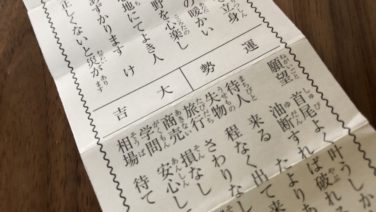 立身
の暖かい
野を心楽し
地によき人
あずかります
け
正しくないと災が
あり
運勢
大吉
願望
叶うしか
油断すれば破れる
待人 来る たより
失物 程なく出て来
旅行 さわりな
商売 損なし
学問 安心し
相場 待て